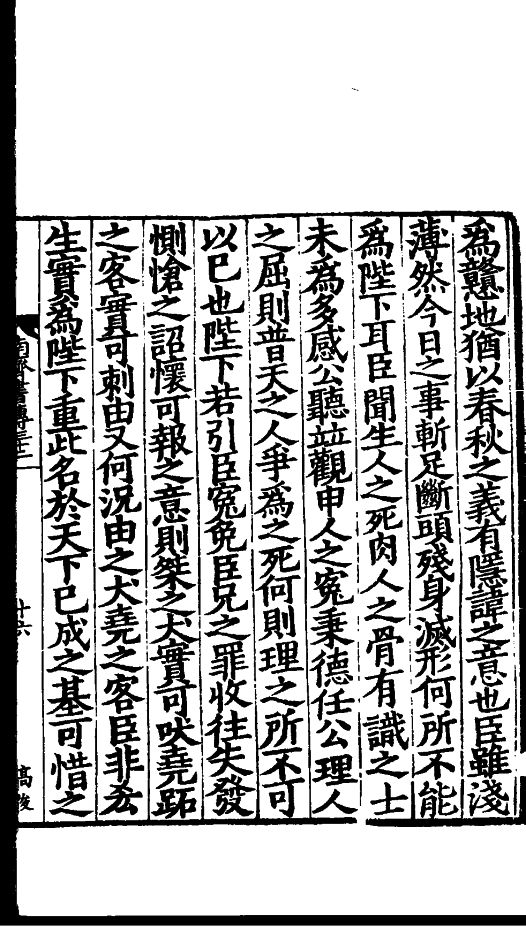 為戆地猶以春秋之義有隱諱之意也臣雖淺
薄然今日之事斬足斷頭殘身滅形何所不能
為陛下耳臣聞生人之死肉人之骨有識之士
未為多感公聽並觀申人之寃秉德任公理人
之屈則普天之人爭為之死何則理之所不可
以已也陛下若引臣寃免臣兄之罪收往失發
惻愴之詔懷可報之意則桀之犬實可吠堯跖
之客實可刺由又何況由之犬堯之客臣非丟
生實為陛下重此名於天下已成之基可惜之
南齊書傳三十二
十六
高俊